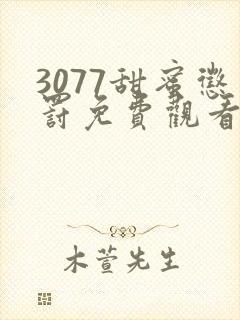 3077甜蜜懲
罰免費觀看
木萱先生